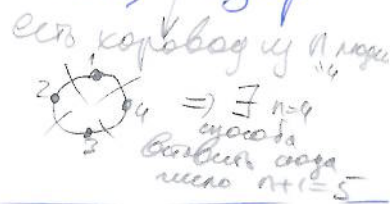 есть хоровод из n людей
"4
1
2
4
3
=> ∃ n=4
способа
вставить сюда
число n+1=5